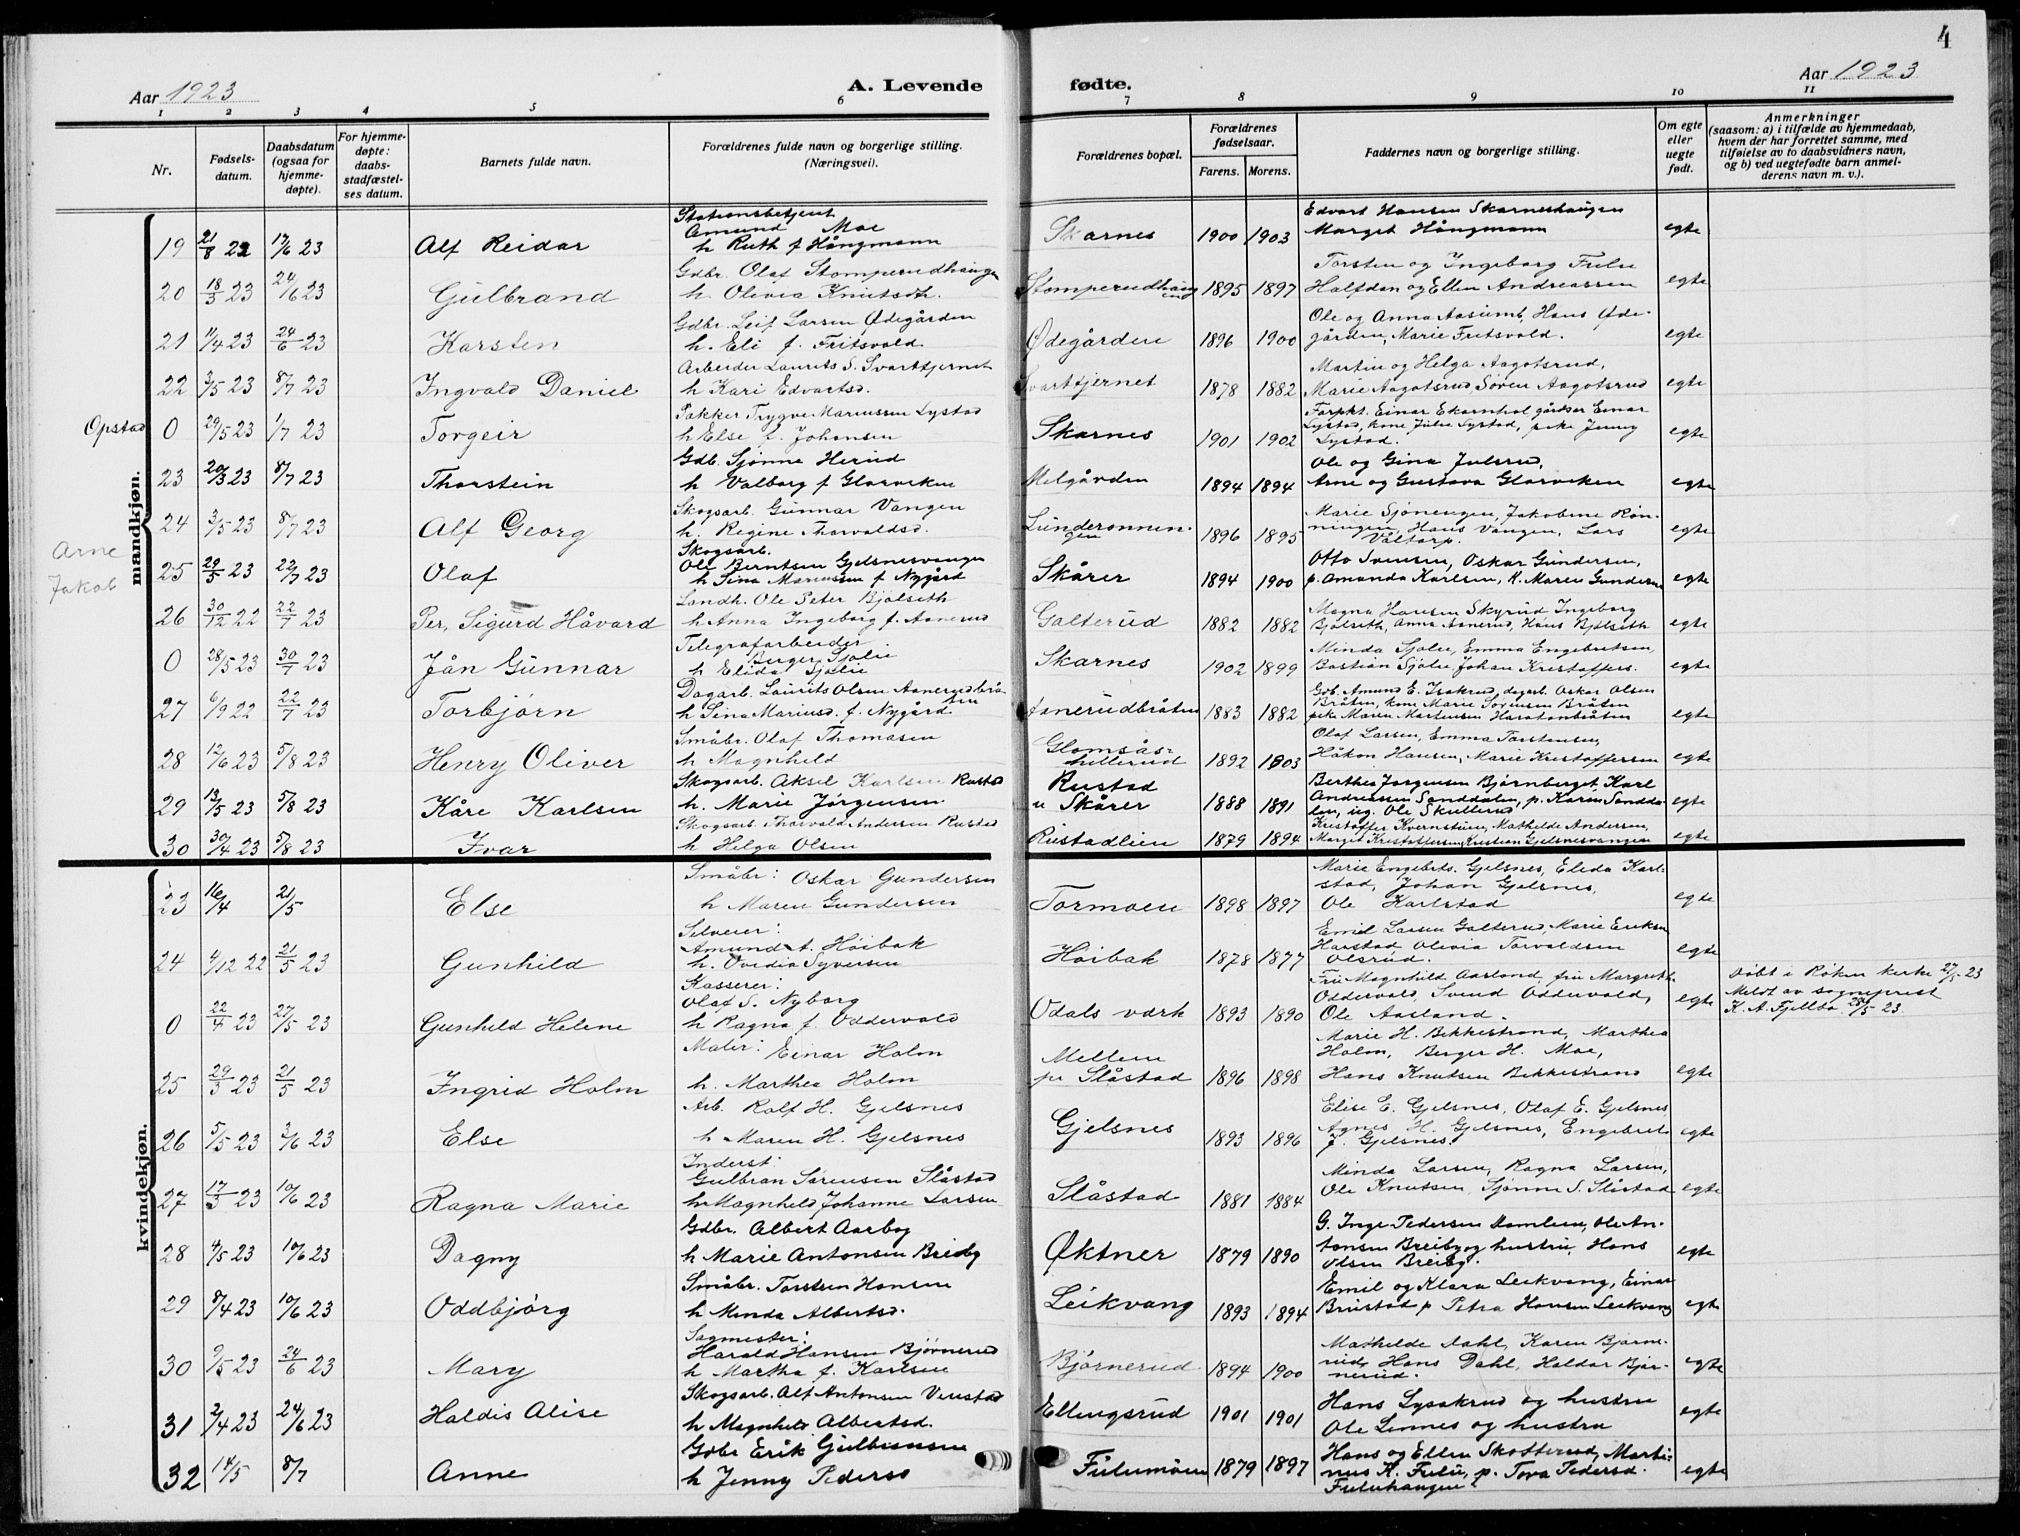 4
Aar 1923
A. Levende
fødte.
Aar 1923
1 2 3 4 5 6 7 8 9 10 11
Nr.
Fødsels-
datum.
Daabsdatum
(ogsaa for
hjemme-
døpte).
For hjemme-
døpte:
daabs-
stadfæstel-
ses datum.
Barnets fulde navn.
Forældrenes fulde navn og borgerlige stilling.
(Næringsvei).
Forældrenes bopæl.
Forældrenes
fødselsaar.
Farens. Morens.
Faddernes navn og borgerlige stilling.
Om egte
eller
uegte
født.
Anmerkninger
(saasom: a) i tilfælde av hjemmedaab,
hvem der har forrettet samme, med
tilføielse av to daabsvidners navn,
og b) ved uegtefødte barn anmel-
derens navn m. v.).
mandkjøn.
Stationsbetjent
Amund Moe
19 21/8 22 17/6 23 Alf Reidar h Ruth f Hångmann
Skarnes 1900 1903
Edvart Hansen Skarneshaugen
Marget Hångmann
egte
Gdbr. Olaf Stomperudhaugen
20 18/3 23 24/6 23 Gulbrand h. Olivia Knutsdt.
Stomperudhaugen 1895 1897
Torsten og Ingeborg Fulu
Halfdan og Ellen Andreassen
egte
Gdbr. Leif Larsen Ødegården
21 11/4 23 24/6 23 Karsten h. Eli f. Fritsvold
Ødegården 1896 1900
Ole og Anna Aasumb, Hans Øde-
gården, Marie Fritsvold.
egte
Arbeider Laurits S. Svarttjernet
22 3/5 23 8/7 23 Ingvald Daniel h Kari Edvartsd.
Svarttjernet 1878 1882
Martin og Helga Aagotsrud,
Marie Aagotsrud, Søren Aagotsrud
egte
Opstad
Pakker Trygve Mariussen Lystad
0 29/5 23 1/7 23 Torgeir h Else f. Johansen
Skarnes 1901 1902
Forpkt. Einar Ekornhol gårdsar Einar
Lystad, kone Julie Lystad, pike Jenny
Lystad.
egte
Gdb. Sjønne Herud
23 20/3 23 8/7 23 Thorstein h Valborg f Glorviken
Melgården 1894 1894
Ole og Gina Julsrud,
Arne og Gustava Glorviken
egte
Skogsarb. Gunnar Vangen
24 3/5 23 8/7 23 Alf Georg h. Regine Thorvaldsd.
Lunderønnin-
gen 1896 1895
Marie Sjønengen, Jakobine Røn-
ningen, Hans Vangen, Lars
Valtorp.
egte
Arne
Jakob
Skogsarb.
Ole Berntsen Gjelsnesvangen
25 29/5 23 22/7 23 Olaf h Lina Mariussen f Nygård
Skårer 1894 1900
Otto Svensen, Oskar Gundersen,
p. Amanda Karlsen, K. Maren Gundersen
egte
Landh. Ole Peter Bjølseth
26 30/12 22 22/7 23 Per, Sigurd Håvard h Anna Ingeborg f. Aanerud
Galterud 1882 1882
Magna Hansen Skyrud Ingeborg
Bjølseth, Anna Aanerud, Hans Bjølseth
egte
Telegrafarbeider
Berger Sjølie
0 28/5 23 30/7 23 Jån Gunnar h Elida Sjølie
Skarnes 1902 1899
Minda Sjølie, Emma Engebretsen
Bastian Sjølie, Johan Kristoffers.
egte
Dagarb. Laurits Olsen Aanerudbrå-
ten
27 6/9 22 22/7 23 Torbjørn h Lina Mariusd. f. Nygård
Aanerudbråten 1883 1882
Gdb. Amund E. Isakrud, dagarb. Oskar Olsen
Bråten, kone Marie Sørensen Bråten
pike Maren Martensen Haratonbråten
egte
Småbr. Olaf Thomasen
28 12/6 23 5/8 23 Henry Oliver h Magnhild
Glomsås-
hullerud 1892 1903
Olaf Larsen, Emma Torstensen,
Håkon Hansen, Marie Kristoffersen
egte
Skogsarb. Aksel Karlsen Rustad
29 13/5 23 5/8 23 Kåre Karlsen h. Marie Jørgensen.
Rustad
u Skårer 1888 1891
Berthea Jørgensen Bjørnberget, Karl
Andreassen Sanddalen, p. Karen Sandda-
len, ug. Ole Skullerud
egte
Skogsarb. Thorvald Andersen Rustad
30 30/4 23 5/8 23 Ivar h Helga Olsen
Rustadlien 1879 1894
Kristoffer Kvernstuen, Mathilde Andersen,
Marget Kristoffersen, Kristian Gjelsnesvangen
egte
kvindekjøn.
Småbr: Oskar Gundersen
23 16/4 21/5 Else h Maren Gundersen
Tormoen 1898 1897
Marie Engebrets. Gjelsnes, Elida Karl-
stad, Johan Gjelsnes,
Ole Karlstad
egte
Selveier:
Amund A. Høibak
24 4/12 22 21/5 23 Gunhild h. Ovidia Syversen
Høibak 1878 1877
Emil Larsen Galterud, Marie Eriksen
Harstad Olivia Torvaldsen
Olsrud.
egte
Kasserer:
Olaf S. Nyborg
0 22/4 23 27/5 23 Gunhild Helene h Ragna f. Oddervald
Odals værk 1893 1890
Fru Magnhild Aasland, fru Margreth
Oddervald, Svend Oddervald,
Ole Aasland.
egte
Døbt i Røken kirke 27/5 23
Meldt av sogneprest
K. A. Fjellbo 28/5 23.
Maler: Einar Holm
25 29/3 23 21/5 23 Ingrid Holm h. Marthea Holm
Mellem
pr Slåstad 1896 1898
Marie H. Bekkestrand, Marthea
Holm, Berger H. Moe,
Hans Knutsen Bekkestrand
egte
Arb. Rolf H. Gjelsnes
26 5/5 23 3/6 23 Else h Maren H. Gjelsnes
Gjelsnes 1893 1896
Elise E. Gjelsnes, Olaf E. Gjelsnes
Agnes H. Gjelsnes, Engebret
J. Gjelsnes.
egte
Inderst:
Gulbran Sørensen Slåstad
27 17/3 23 10/6 23 Ragna Marie h Magnhild Johanne Larsen
Slåstad 1881 1884
Minda Larsen, Ragna Larsen,
Ole Knutsen, Sjønne S. Slåstad
egte
Gdbr. Albert Aarbog
28 4/5 23 10/6 23 Dagny h Marie Antonsen Breiby
Øktner 1879 1890
G. Inge Pedersen Domlien, Ole An-
tonsen Breiby og hustru, Hans
Olsen Breiby.
egte
Småbr. Torsten Hansen
29 8/4 23 10/6 23 Oddbjørg h Minda Albertsd.
Leikvang 1893 1894
Emil og Klara Leikvang, Einar
Brustad p Petra Hansen Leikvang
egte
Sagmester:
Harald Hansen Bjørnerud
30 9/5 23 24/6 23 Mary h Martha f. Karlsen
Bjørnerud 1894 1900
Mathilde Dahl, Karen Bjørne-
rud, Hans Dahl, Haldor Bjør-
nerud.
egte
Skogsarb. Alf Antonsen Venstad
31 2/4 23 24/6 23 Haldis Alise h Magnhild Albertsd.
Ellingsrud 1901 1901
Hans Lysakrud og hustru
Ole Linnes og hustru
egte
Gdbr Erik Gulbransen
32 14/5 8/7 Anne h Jenny Pederso
Fulumoen 1879 1897
Hans og Ellen Skotterud, Marti-
nus K. Fulu, p. Tora Pedersd.
Fuluhaugen
egte